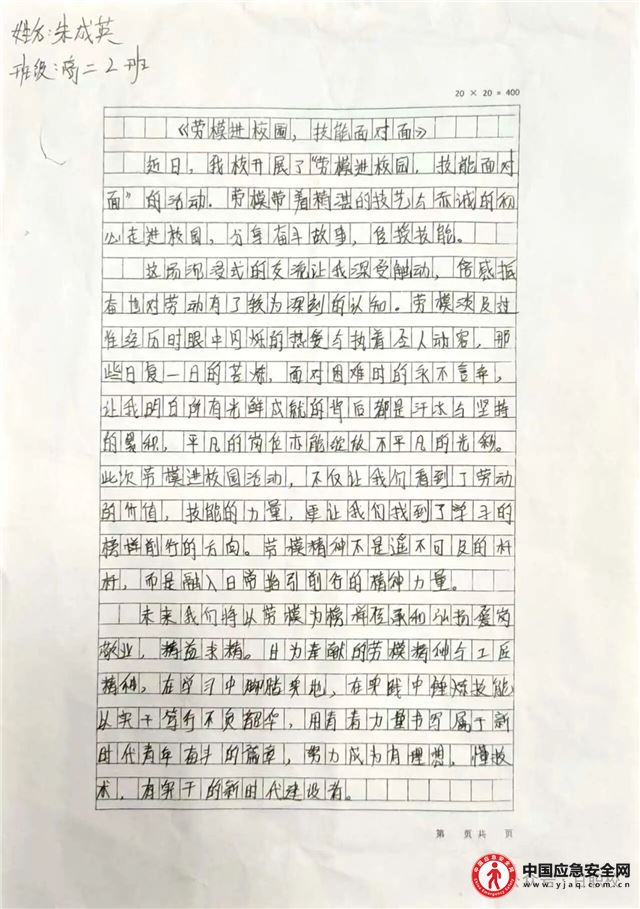 姓名:朱成英
班级:高二2班
20 × 20 = 400
《劳模进校园,技能面对面》
近日,我校开展了“劳模进校园,技能面对
面”的活动.劳模带着精湛的技艺与赤诚的初
心走进校园,分享奋斗故事,传授技能。
这场沉浸式的交流让我深受触动,倍感振
奋也对劳动有了较为深刻的认知。劳模谈及过
往经历时眼中闪烁的热爱与执着令人动容,那
些日复一日的苦练,面对困难时的永不言弃,
让我明白所有光鲜成就的背后都是汗水与坚持
的累积,平凡的岗位亦能绽放不平凡的光彩。
此次劳模进校园活动,不仅让我们看到了劳动
的价值,技能的力量,更让我们找到了学习的
榜样前行的方向。劳模精神不是遥不可及的标
杆,而是融入日常指引前行的精神力量。
未来我们将以劳模为榜样传承和弘扬爱岗
敬业,精益求精。甘为奉献的劳模精神与工匠
精神,在学习中脚踏实地,在实践中锤炼技能
以实干笃行不负韶华,用青春力量书写属于新
时代青年奋斗的篇章,努力成为有理想,懂技
术,有实干的新时代建设者。
第 页共 页
中国应急安全网
www.yjaq.com.cn